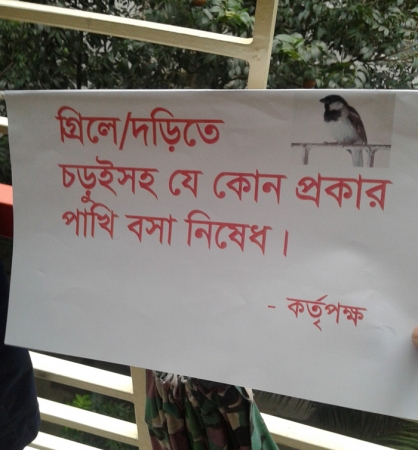 গ্রিলে/দড়িতে
চড়ুইসহ যে কোন প্রকার
পাখি বসা নিষেধ।
- কর্তৃপক্ষ